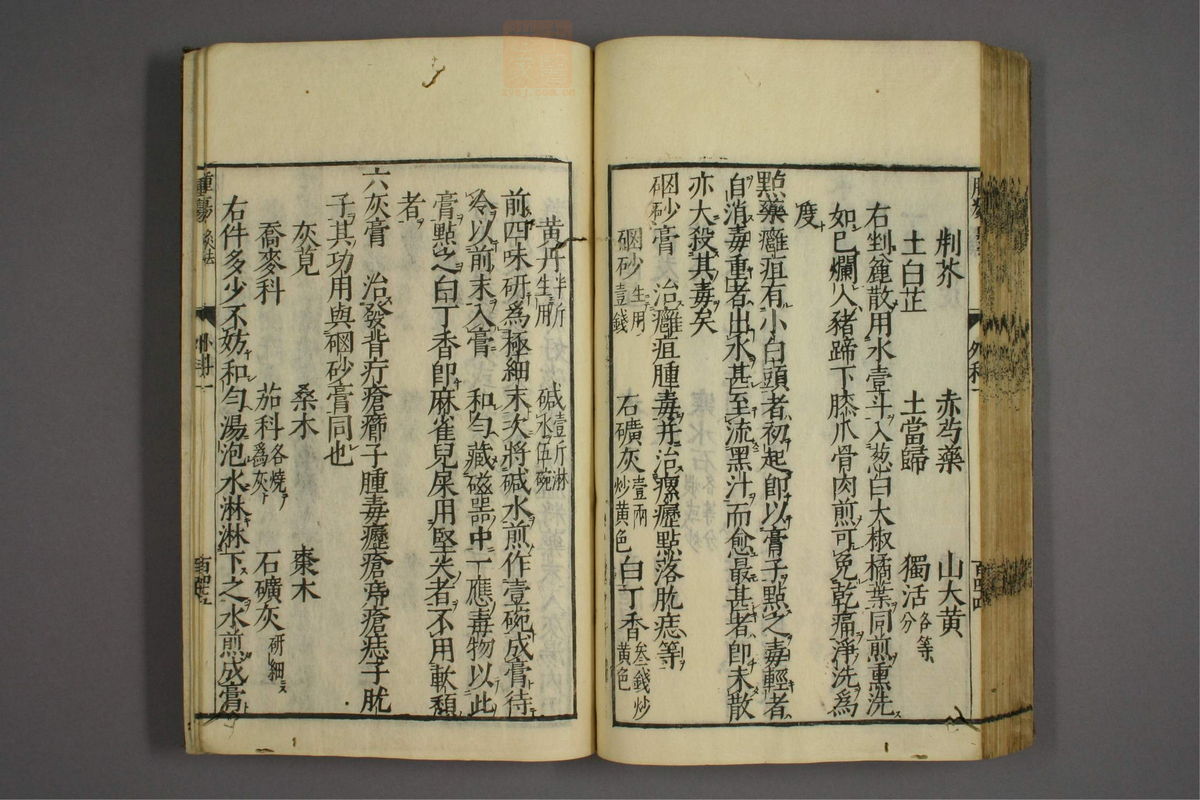 荆芥　赤芍藥　山大黃
土白芷　土當歸　獨活各等分
右剉䤄散用水壹斗入葱白大椒橘葉同煎熏洗
如已爛人豬蹄下膝爪骨肉煎可免乾痛淨洗爲
度
點藥癰疽有小白頭者初起即以膏子點之毒輕者
自消毒重者出水甚至流黑汁而愈最甚者即未散
亦大殺其毒矣
硇砂膏　治癰疽腫毒并治瘰癧點落肬痣等
硇砂生用壹錢　石礦灰壹兩炒黃色　白丁香叁錢炒黃色
黄丹半斤生用　碱壹斤淋水伍碗
前四味研爲極細末次將碱水煎作壹碗成膏待
冷以前末入膏　和勻藏磁器中一應毒物以此
膏點之白丁香即麻雀兒屎用堅尖者不用軟頽
者
六灰膏　治發背疔瘡癤子腫毒癧瘡痔瘡痣子肬
子其功用與硇砂膏同也
灰莧　桑木　棗木
喬麥科　茄科各燒爲灰　石礦灰研細
右件多少不妨和勻湯泡水淋淋下之水煎成膏
腫瘍
外科一